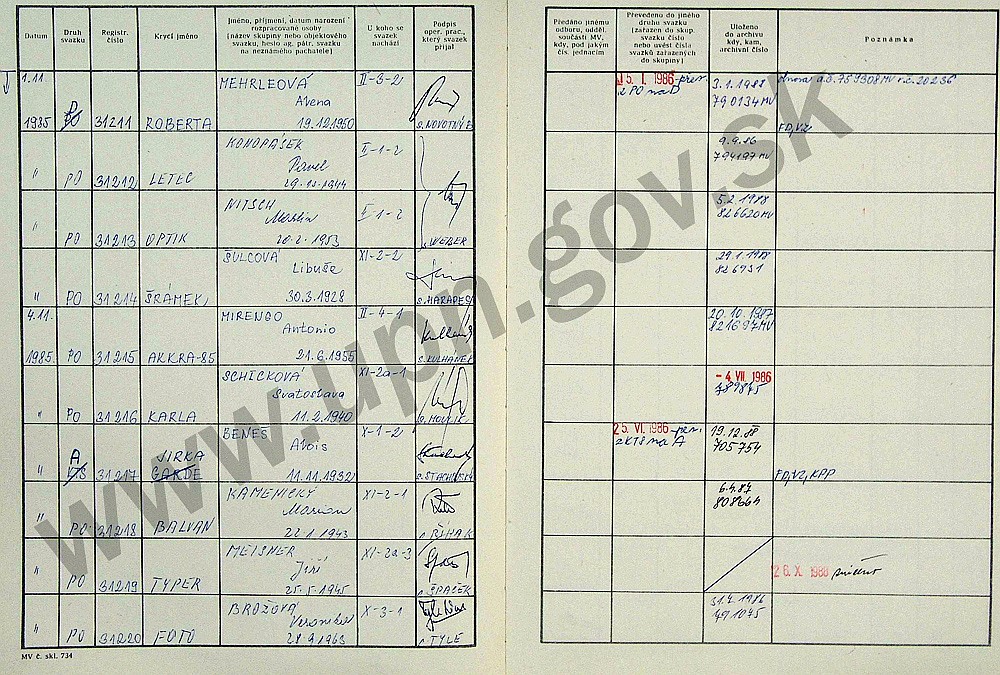 Datum
Druh svazku
Registr. číslo
Krycí jméno
Jméno, příjmení, datum narození rozpracované osoby (název skupiny nebo objektového svazku, heslo ag. pátr. svazku na neznámého pachatele)
U koho se svazek nachází
Podpis oper. prac., který svazek přijal
Předáno jinému odboru, odděl. součásti MV, kdy, pod jakým čís. jednacím
Převedeno do jiného druhu svazku (zařazen do skup. svazku číslo nebo uvést čísla svazků zařazených do skupiny)
Uloženo do archivu kdy, kam, archivní číslo
Poznámka
1.11. MEHRLEOVÁ II-3-2 15. I. 1986 3.1.1988
790134 MV
1985 31211 ROBERTA 19.12.1950 s. NOVOTNÝ
FD, VZ
KONOPÁSEK II-1-2 9.9.86
Pavel 794197 MV
" PO 31212 LETEC
NITSCH II-1-2 5.2.1988
826620 MV
" PO 31213 OPTIK 20.2.1953 s. WEBER
ŠULCOVÁ XI-2-2 29.1.1988
Libuše 826731
" PO 31214 ŠRÁMEK 30.3.1928
4.11. MIRENGO II-4-1 20.10.1987
Antonio 821697 MV
1985 PO 31215 AKKRA-85 21.6.1955 s. KULHÁNEK
SCHICKOVÁ XI-2a-1 - 4. VII. 1986
Svatoslava 789845
" PO 31216 KARLA 11.2.1940
BENEŠ X-1-2 25. VI. 1986 19.12.88
A JIRKA Alois 705754
" 31217 GARDE 11.11.1932 FD, VZ, KPP
KAMENICKÝ XI-2-1 6.4.87
Marian 808664
" PO 31218 BALVAN 22.1.1943 s. ŘIHÁK
MEISNER XI-2a-3
Jiří 26. X. 1988
" PO 31219 TYPER 25.5.1945 s. ŠPAČEK
BROŽOVÁ X-3-1
Veronika 791045
" PO 31220 FOTO 28.9.1963 s. TYLE
MV č. skl. 734
www.upn.gov.sk